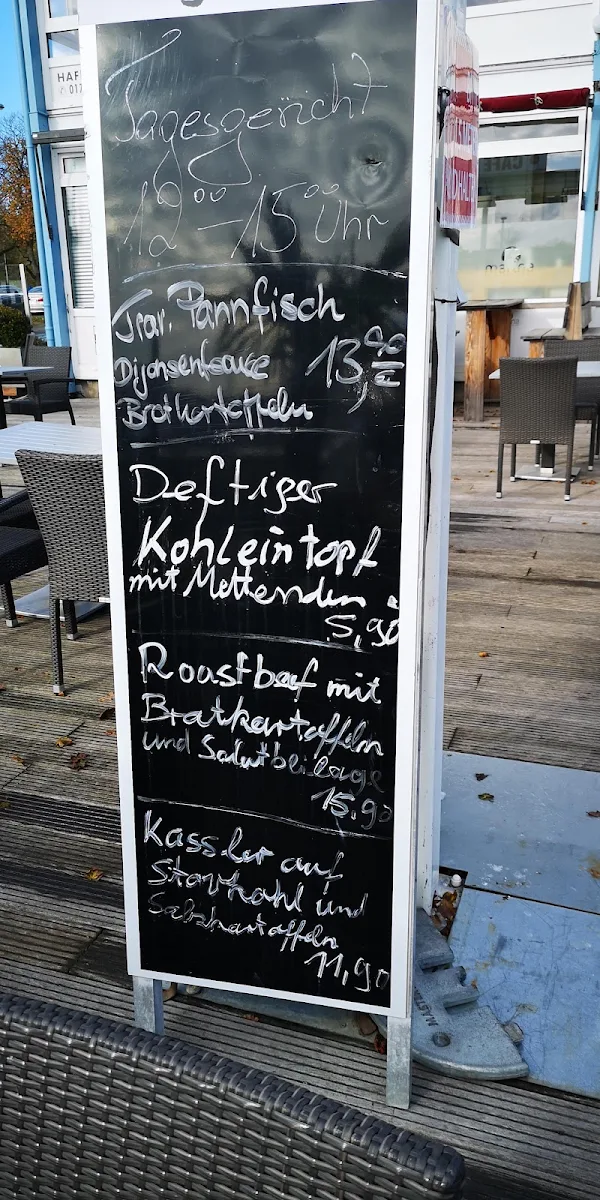 HAF
017
Tagesgericht
12⁰⁰ - 15⁰⁰ Uhr
Trar. Pannfisch
Dijonsenfsauce 13,90
Bratkartoffeln
Deftiger
Kohleintopf
mit Mettenden
5,90
Roastbeef mit
Bratkartoffeln
und Salatbeilage
15,90
Kassler auf
Starkohl und
Salzkartoffeln
11,90